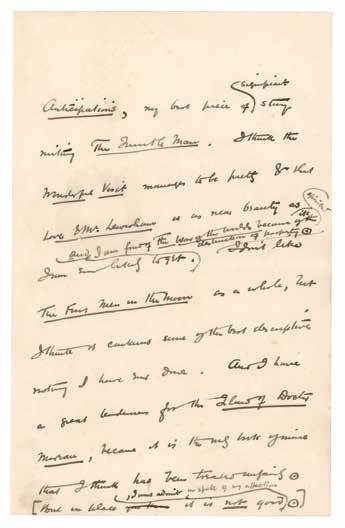 significant
Anticipations, my best piece of story
writing The Invisible Man. I think the
Wonderful Visit manages to be pretty & that
Love & Mr Lewisham is as near beauty as
and I am fond of the War of the Worlds because of the
destruction of property
I am ever likely to get. I don't like
The First Men in the Moon as a whole, but
I think it contains some of the best descriptive
writing I have ever done. And I have
a great tenderness for the Island of Doctor
Moreau, because it is the only book of mine
that I think has been treated unfairly
, I must admit, in spite of my affection
[But in places it is not good]